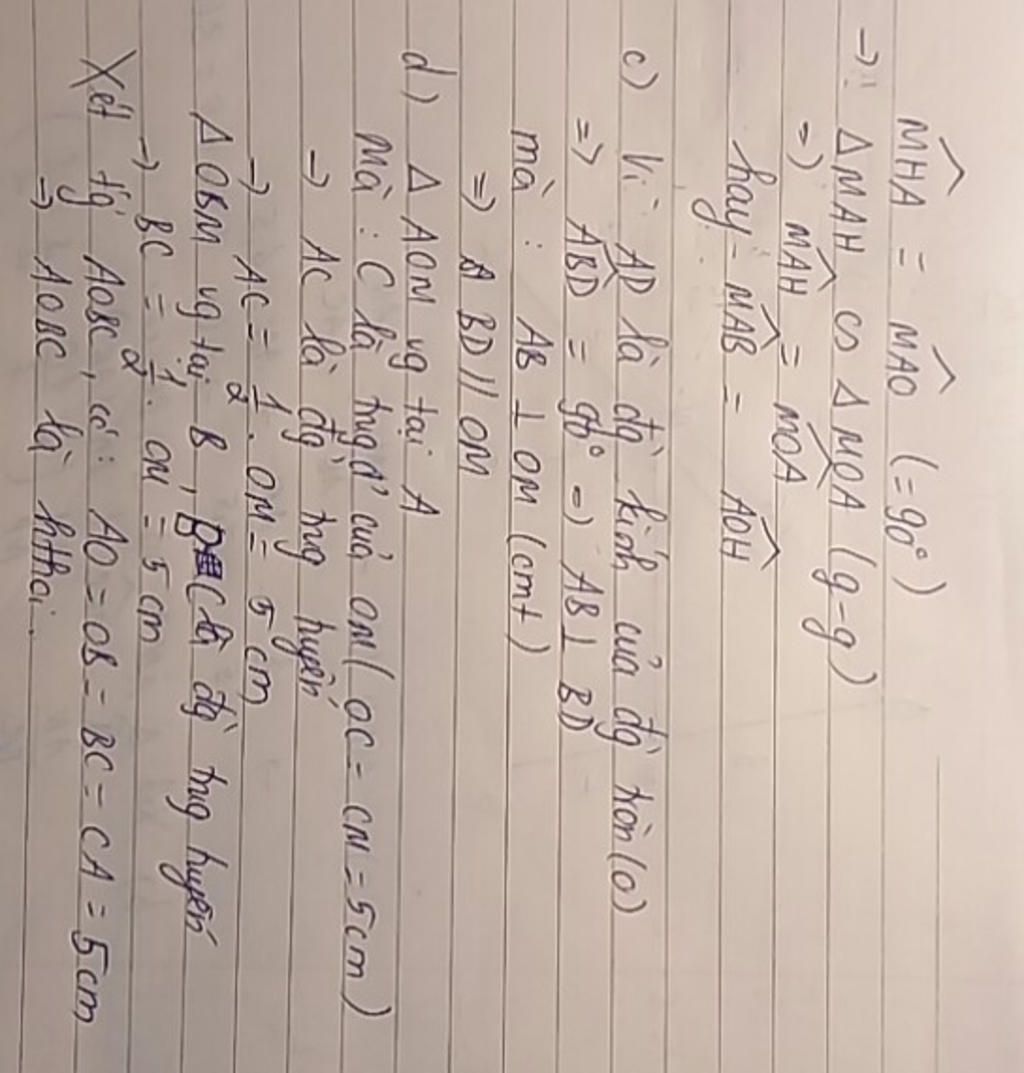 MHA = MAO (= 90°)
→ ΔMAH ∽ ΔMOA (g-g)
=) MAH = MOA
hay - MAB = AOH
c) Vì AD là đg` kính của đg` tròn (O)
=> ABD = 90° =) AB ⊥ BD
mà : AB ⊥ OM (cmt)
=> BD // OM
d) Δ AOM vg tại A
Mà : C là trgđ' của OM (OC = CM = 5cm)
→ AC là đg` trg huyến
→ AC = 1/2 . OM = 5 cm
Δ OBM vg tại B, BC là đg` trg huyến
→ BC = 1/2 . OM = 5 cm
Xét tg' AOBC, có : AO = OB = BC = CA = 5cm
→ AOBC là hthoi.